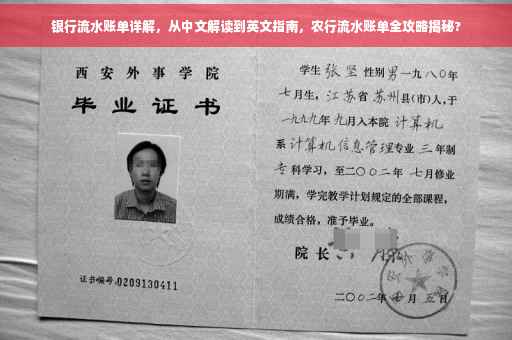 银行流水账单详解，从中文解读到英文指南，农行流水账单全攻略揭秘？
西安外事学院
毕业证书
证书编号:0209130411
学生 张坚 性别男 一九八〇年
七月生，江苏省苏州县(市)人，于
一九九九年九月入本院 计算机
系计算机信息管理专业 三年制
专科学习，至二〇〇二年 七月修业
期满，学完教学计划规定的全部课程，
成绩合格，准予毕业。
院长
二〇〇二年 月五日